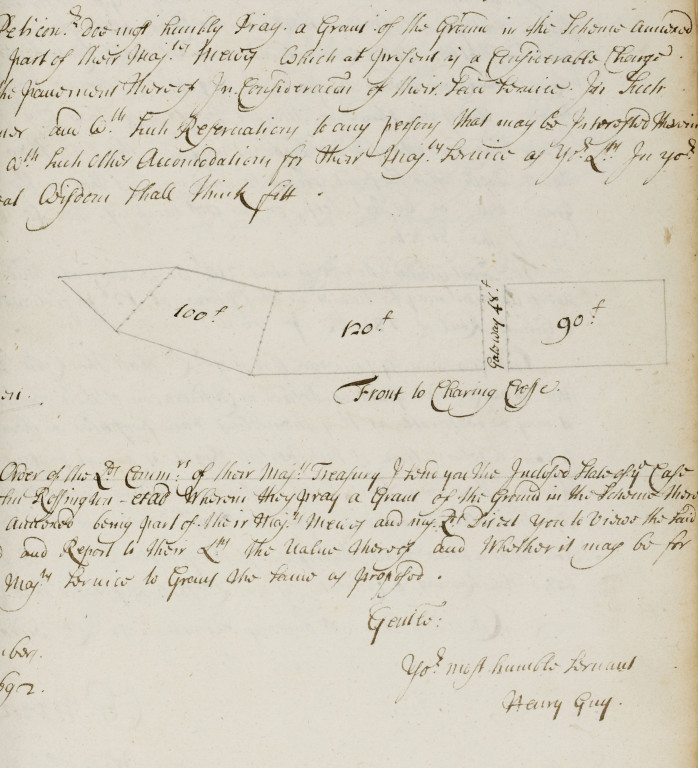 Peticon.rs Doe most humbly Pray a Grant of the Ground in the Scheme Annexed
part of their Maj.tys Mewes Which at present is a Considerable Charge
the pavement thereof In Consideracon of their said Service In Such
ner and W.th Such Reservations to any persons that may be Interested therein
W.th Such other Accomodations for their Maj.tys Service as Yo.r L.ps In yo.r
eat Wisdom Shall think fitt .
100 f
120 f
Gateway 48 f
90 f
Front to Charing Crosse .
en .
Order of the L.ds Comm.rs of their Maj.tys Treasury I send you the Inclosed State of y.e Case
Rossington et ad Wherein they pray a Grant of the Ground in the Scheme there
Annexed being part of their Maj.tys Mewes and my L.ds Direct you to Viewe the said
and Report to their L.ps the Value thereof and Whether it may be for
Maj.tys Service to Grant the same as proposed .
Gentle:
Yo.r most humble Servant
Henry Guy .
mber.
692 .